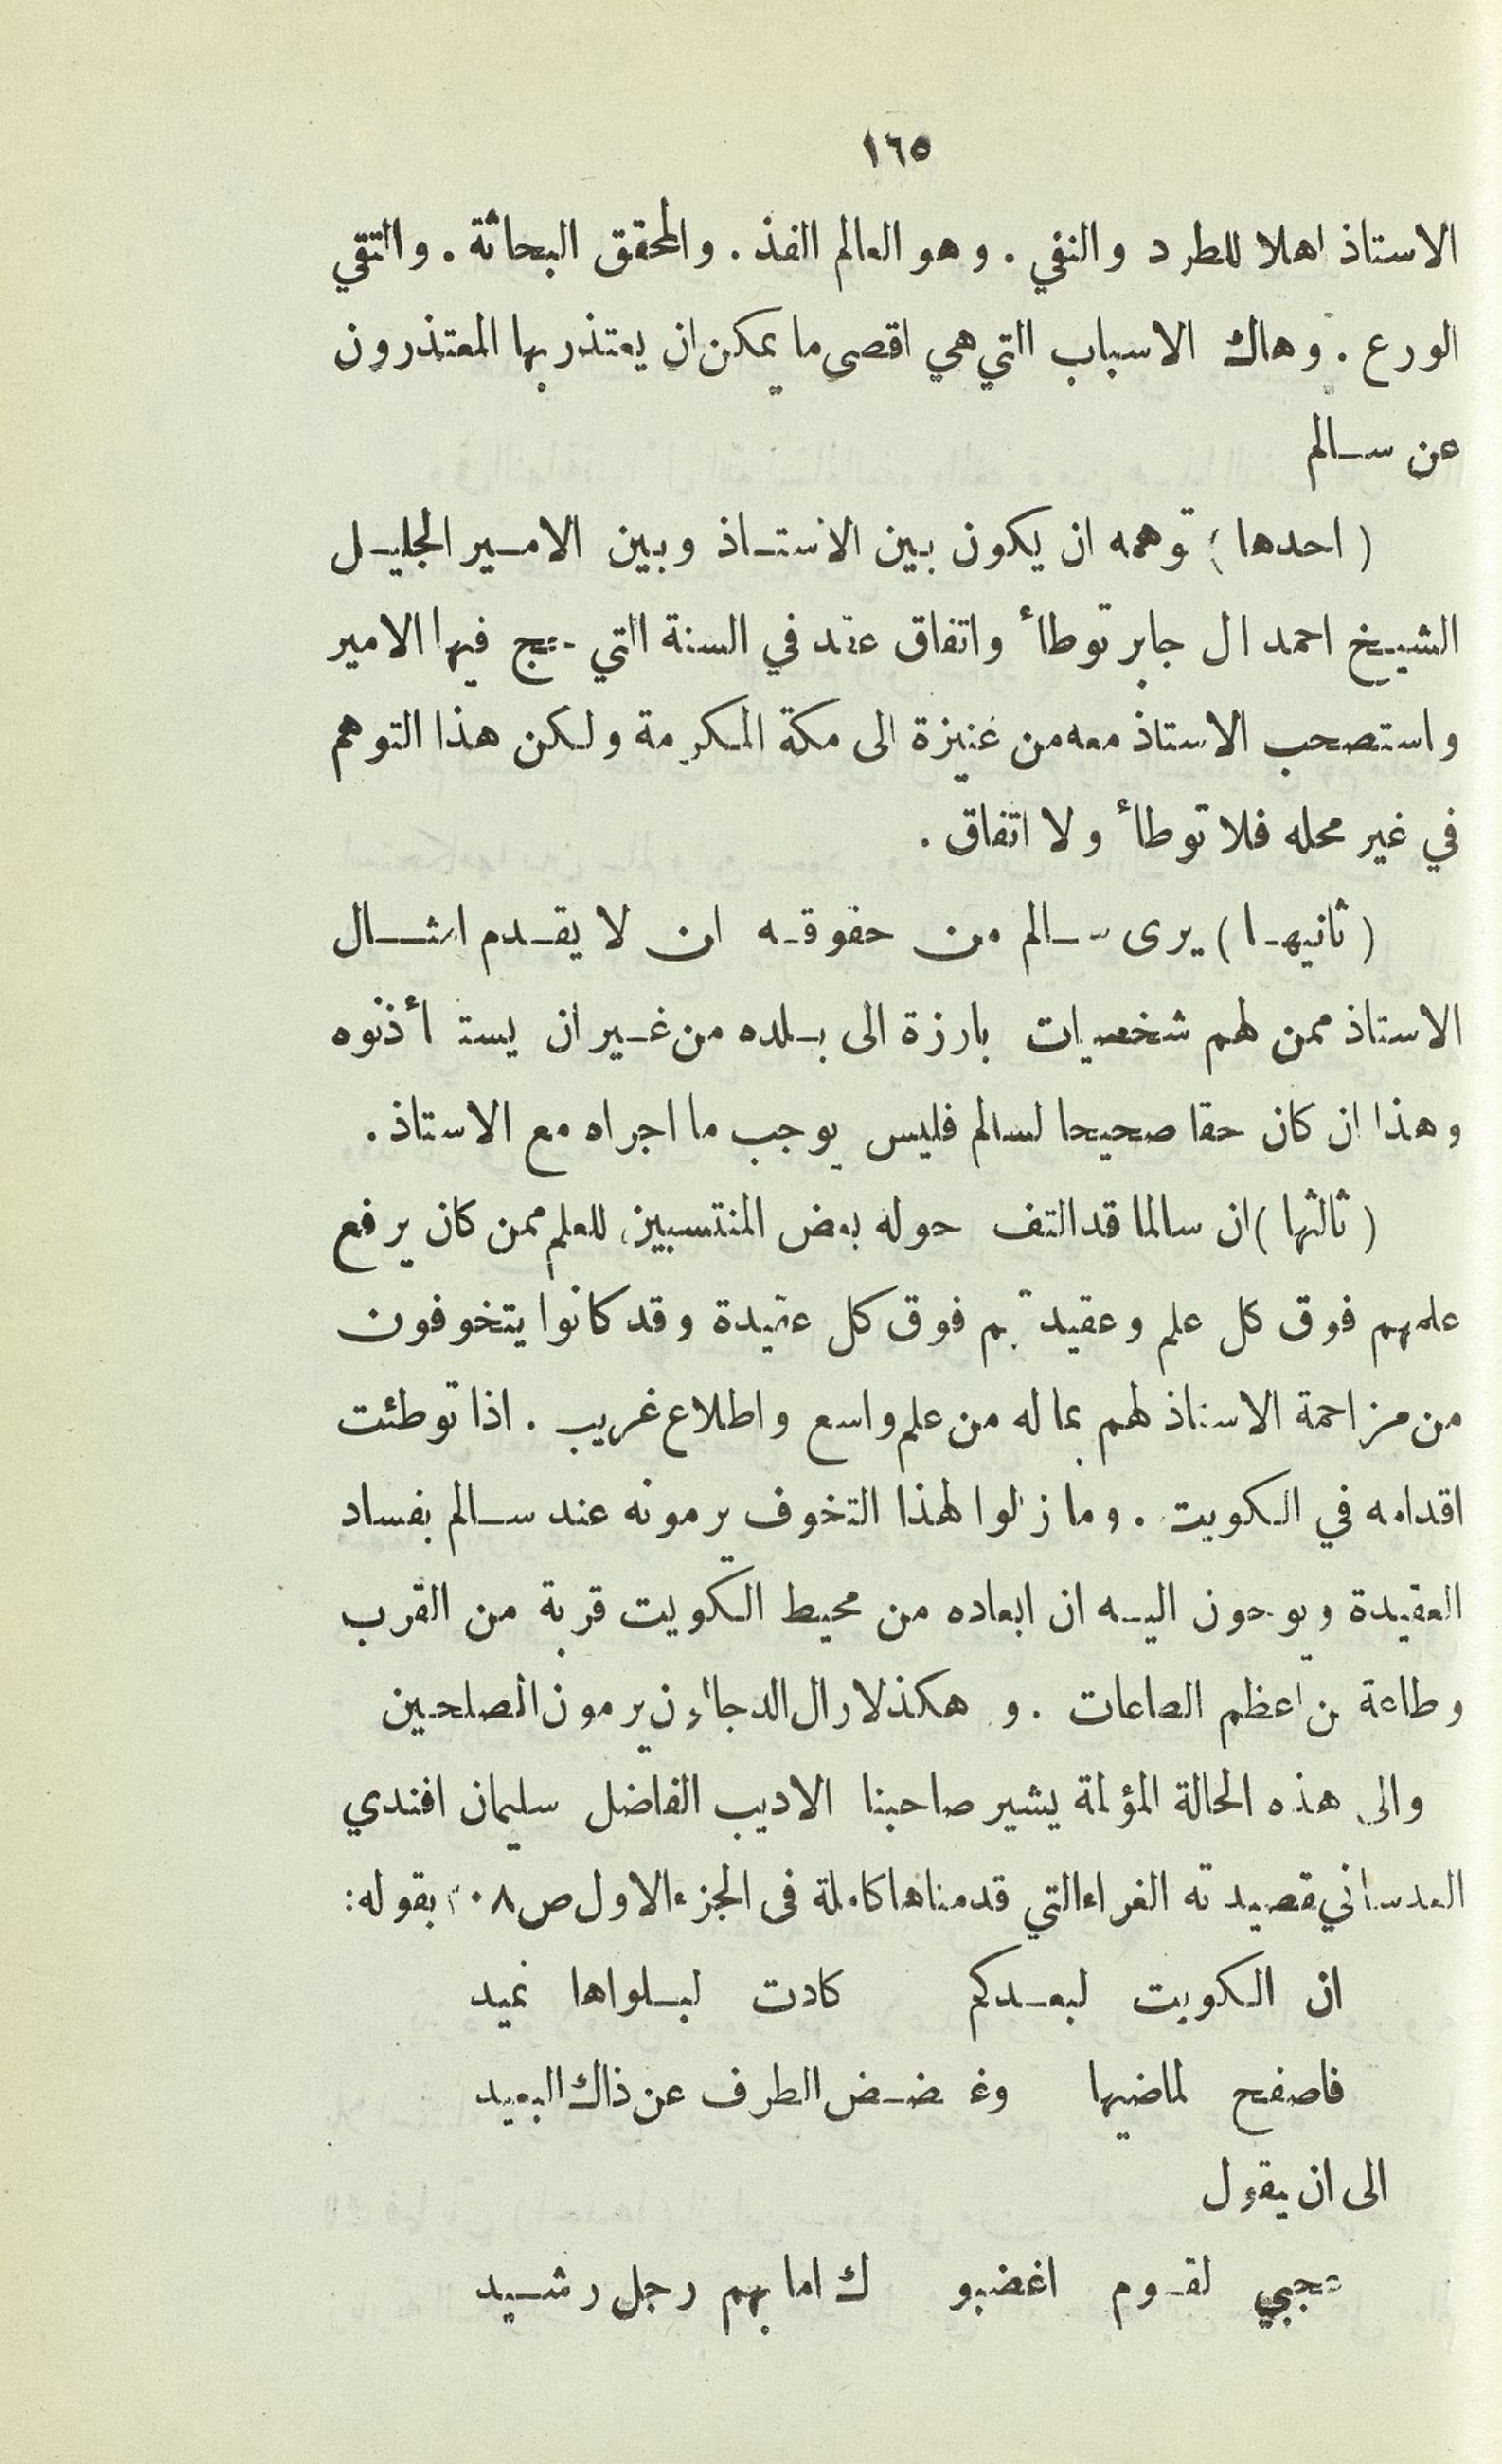 ١٦٥
الاستاذ اهلا للطرد والنفي . وهو العالم الفذ . والمحقق البحاثة . والتقي
الورع . وهاك الاسباب التي هي اقصى ما يمكن ان يعتذر بها المعتذرون
عن سالم
( احدها ) توهمه ان يكون بين الاستاذ وبين الامير الجليل
الشيخ احمد ال جابر توطأ واتفاق عقد في السنة التي حج فيها الامير
واستصحب الاستاذ معه من عنيزة الى مكة المكرمة ولكن هذا التوهم
في غير محله فلا توطأ ولا اتفاق .
( ثانيها ) يرى سالم من حقوقه ان لا يقدم امثال
الاستاذ ممن لهم شخصيات بارزة الى بلده من غير ان يستأذنوه
وهذا ان كان حقا صحيحا لسالم فليس يوجب ما اجراه مع الاستاذ .
( ثالثها ) ان سالما قد التف حوله بعض المنتسبين للعلم ممن كان يرفع
علمهم فوق كل علم وعقيدتهم فوق كل عقيدة وقد كانوا يتخوفون
من مزاحمة الاستاذ لهم بما له من علم واسع واطلاع غريب . اذا توطئت
اقدامه في الكويت . وما زلوا لهذا التخوف يرمونه عند سالم بفساد
العقيدة ويوحون اليه ان ابعاده من محيط الكويت قربة من القرب
وطاعة من اعظم الطاعات . و هكذا يرمون الصلحين
والى هذه الحالة المؤلمة يشير صاحبنا الاديب الفاضل سليمان افندي
العدساني قصيدته الغراء التي قدمناها كاملة فى الجزء الاول ص بقوله :
ان الكويت لبعدكم كادت لبلواها تميد
فاصفح لماضيها وغضض الطرف عن ذاك البعيد
الى ان يقول
عجبي لقوم اغضبو ك اما بهم رجل رشيد